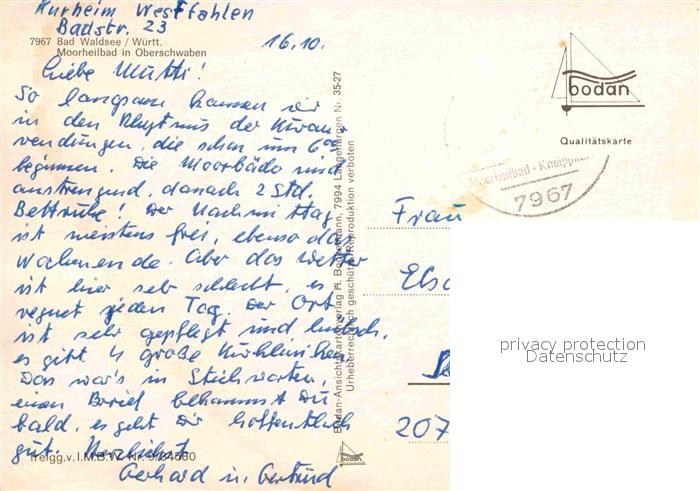 Kurheim Westfahlen
Badstr. 23
7967 Bad Waldsee / Württ.
Moorheilbad in Oberschwaben
16.10.
Liebe Mutti!
So langsam kommen wir
in den Rhytmus der Kuran-
wendungen, die schon um 6 00
beginnen. Die Moorbäder sind
anstrengend, danach 2 Std.
Bettruhe! Der Nachmittag
ist meistens frei, ebenso das
Wochenende. Aber das Wetter
ist hier sehr schlecht, es
regnet jeden Tag. Der Ort
ist sehr gepflegt und hübsch,
es gibt 4 große Kurkliniken
Das war's in Stichworten,
einen Brief bekommst Du
bald, es geht Dir hoffentlich
gut. Herzlichst
Gerhard u. Gertrud
freigg.v.I.M.B.W. Nr. 9/84580
Bodan-Ansichtskartenverlag H. 7994 Langenargen Nr. 35-27
Urheberrechtlich geschützt/Reproduktion verboten
bodan
bodan
Qualitätskarte
Moorheilbad · Kneipp
7967
Frau
Els
207
privacy protection
Datenschutz